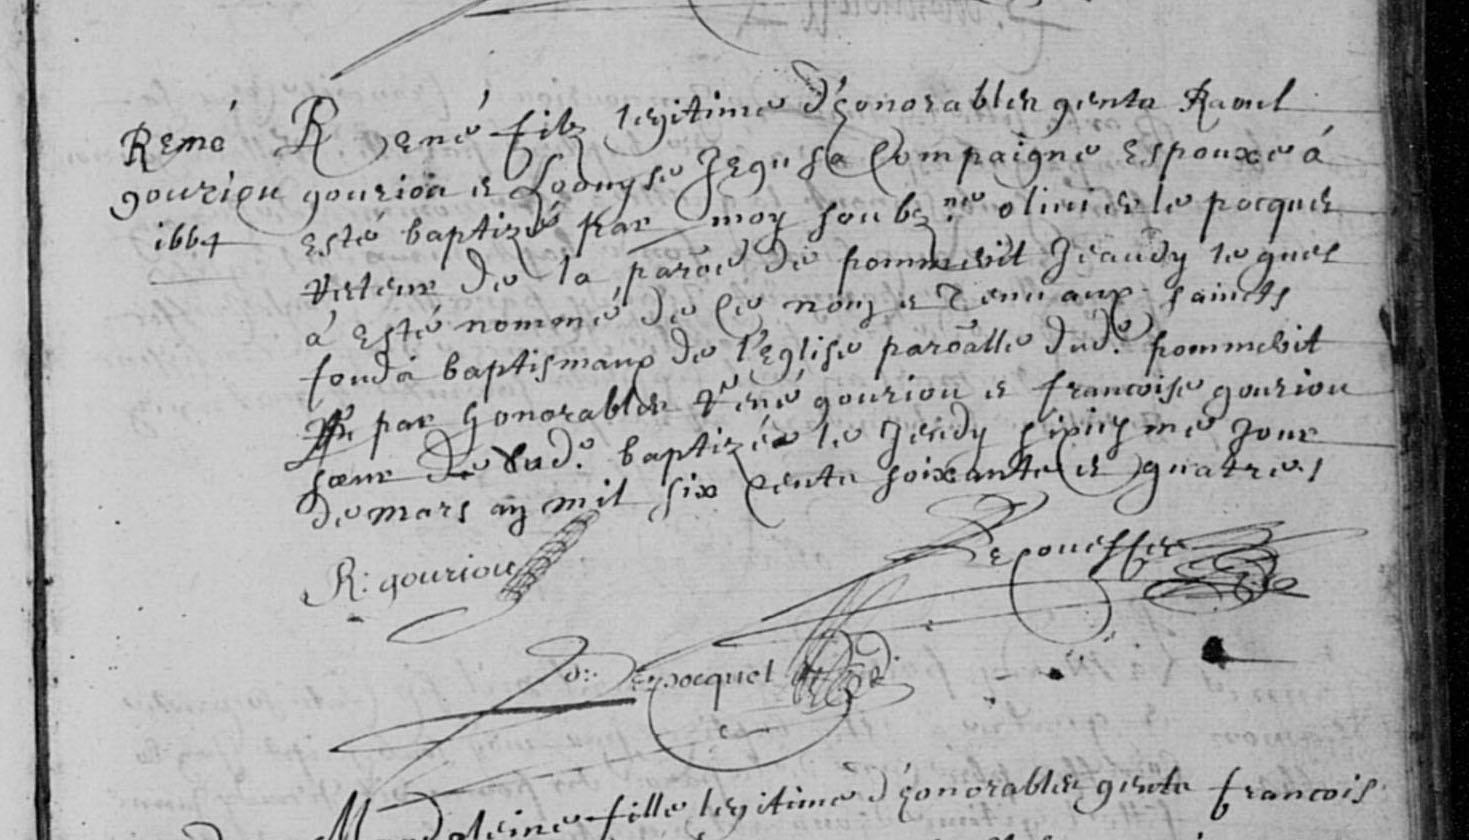 René
gouriou
1664
René filz legitime d'honorables gents Raoul
gouriou et Louyse Jegu sa compaigne espouxe á
esté baptizé par moy soubzne oliuier le pocquet
recteur de la paroe de pommerit Jeaudy lequel
á esté nommé de ce nom et tenu aux saincts
fonds baptismaux de l'Eglise paroálle dud. pommerit
par honorables René gouriou et francoise gouriou
sœur de dud. baptizé le Jeudy sixiesme Jour
de mars an mil six cents soixante et quatre
R: gouriou
Le pocquet
Magdeleine fille legitime d'honorables gents francois